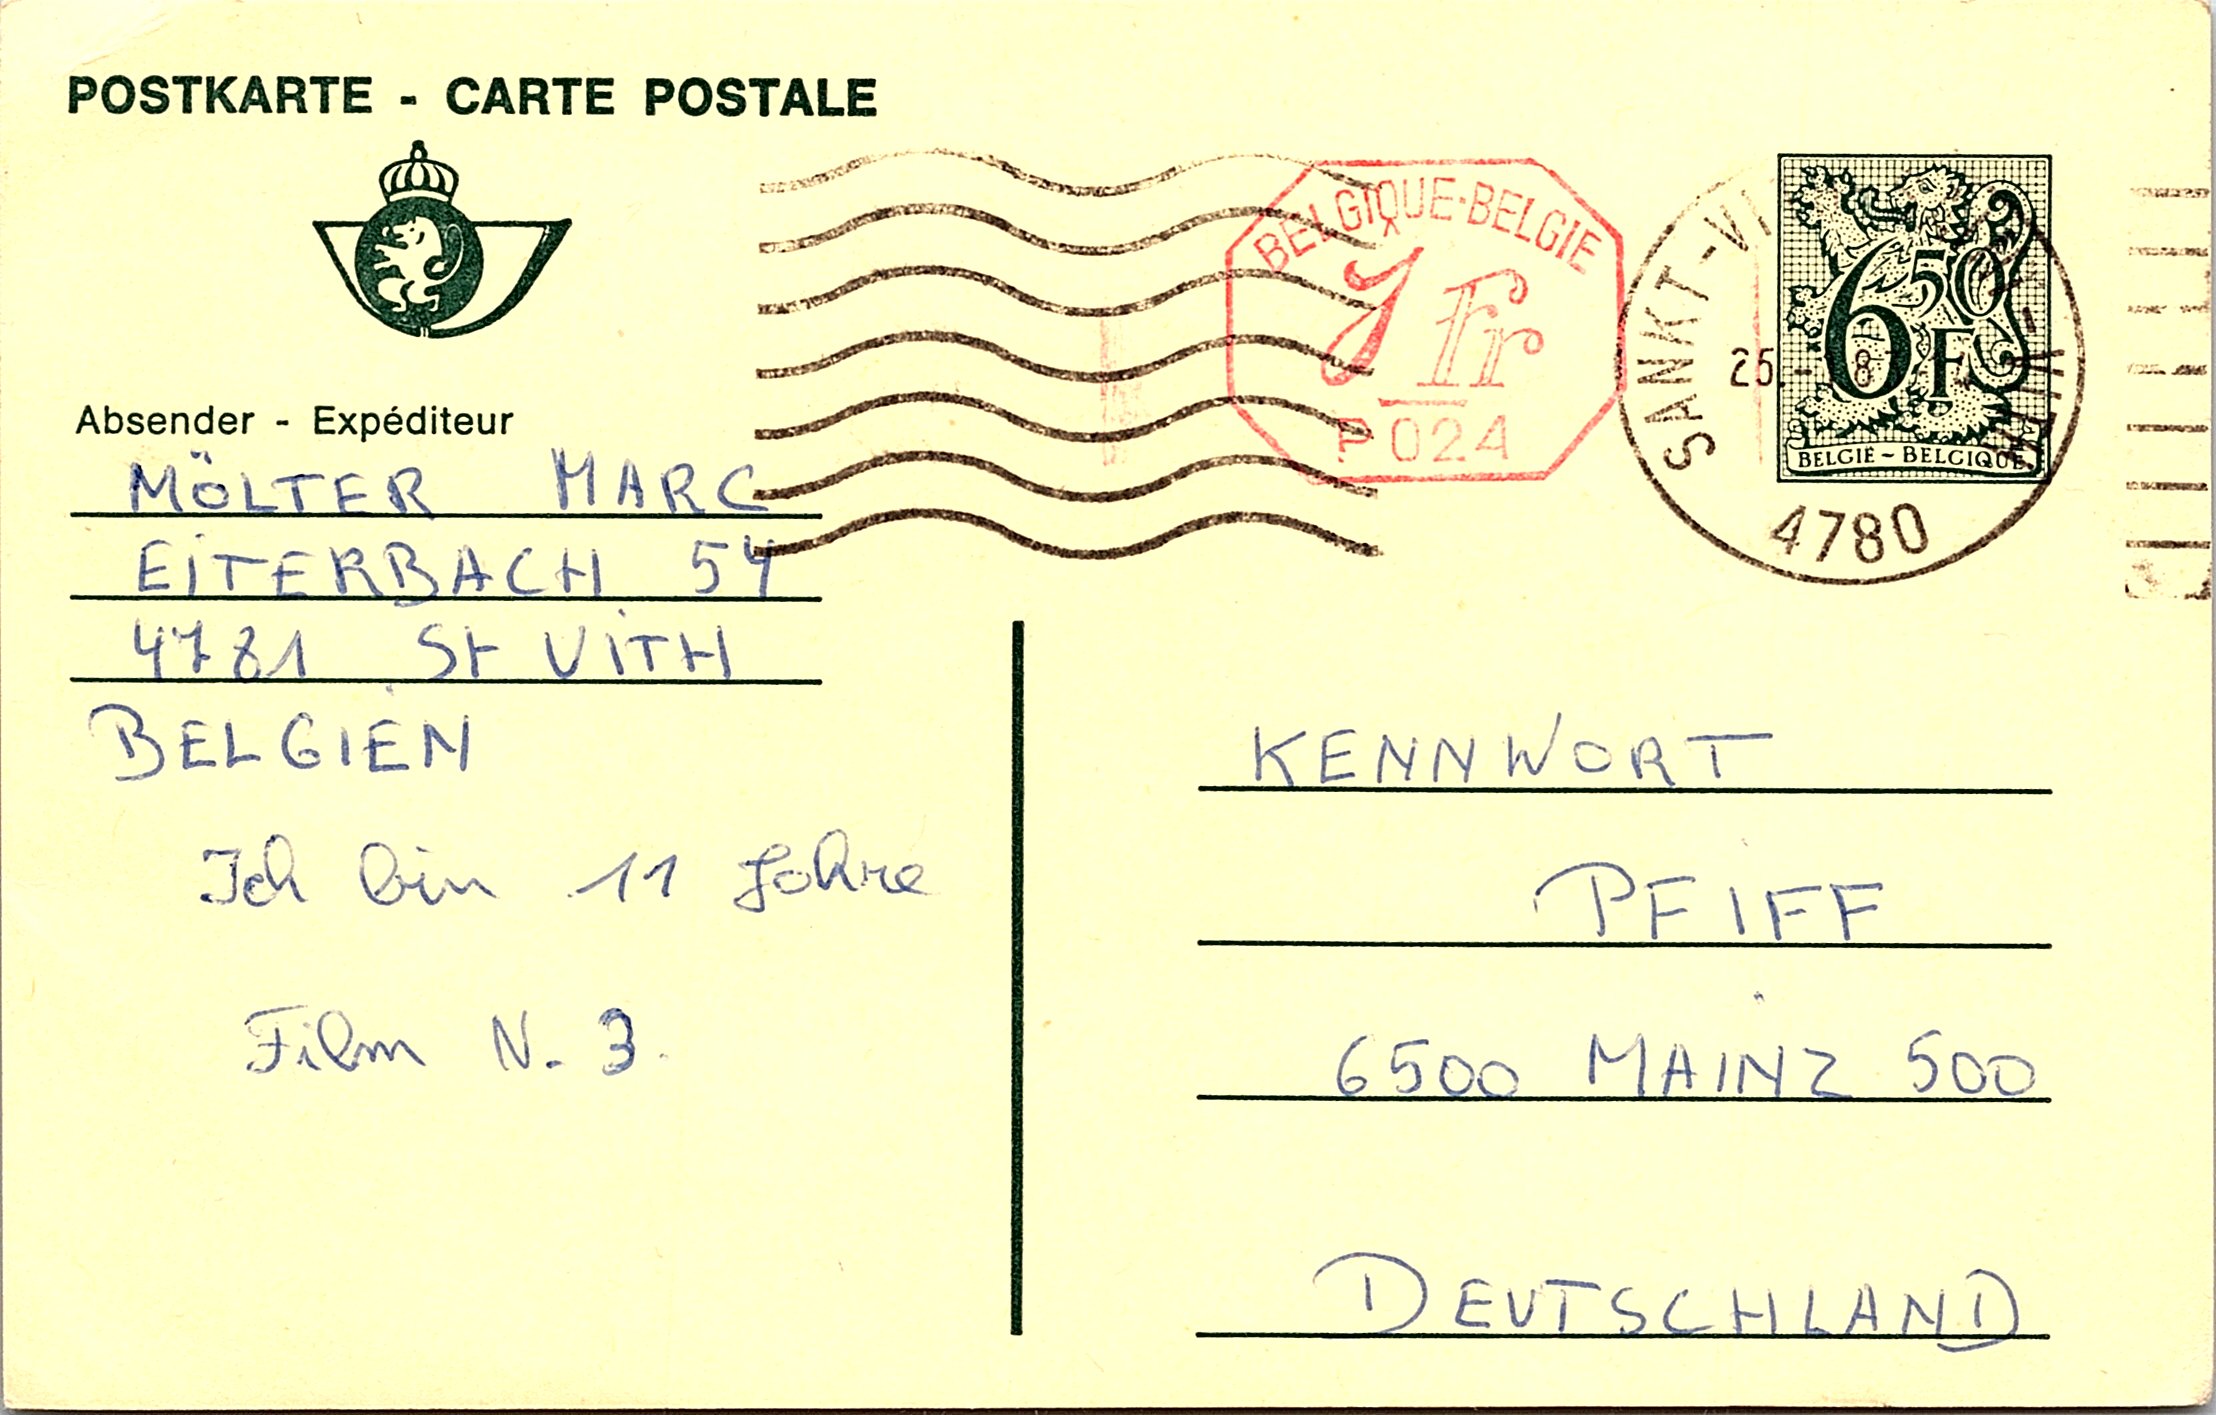 POSTKARTE - CARTE POSTALE
BELGIQUE-BELGIE
1 Fr
P 024
SANKT-VI
25. 87
4780
6 50 F
BELGIË - BELGIQUE
Absender - Expéditeur
MÖLTER MARC
EITERBACH 54
4781 St VITH
BELGIEN
Ich bin 11 Jahre
Film N. 3.
KENNWORT
PFIFF
6500 MAINZ 500
DEUTSCHLAND